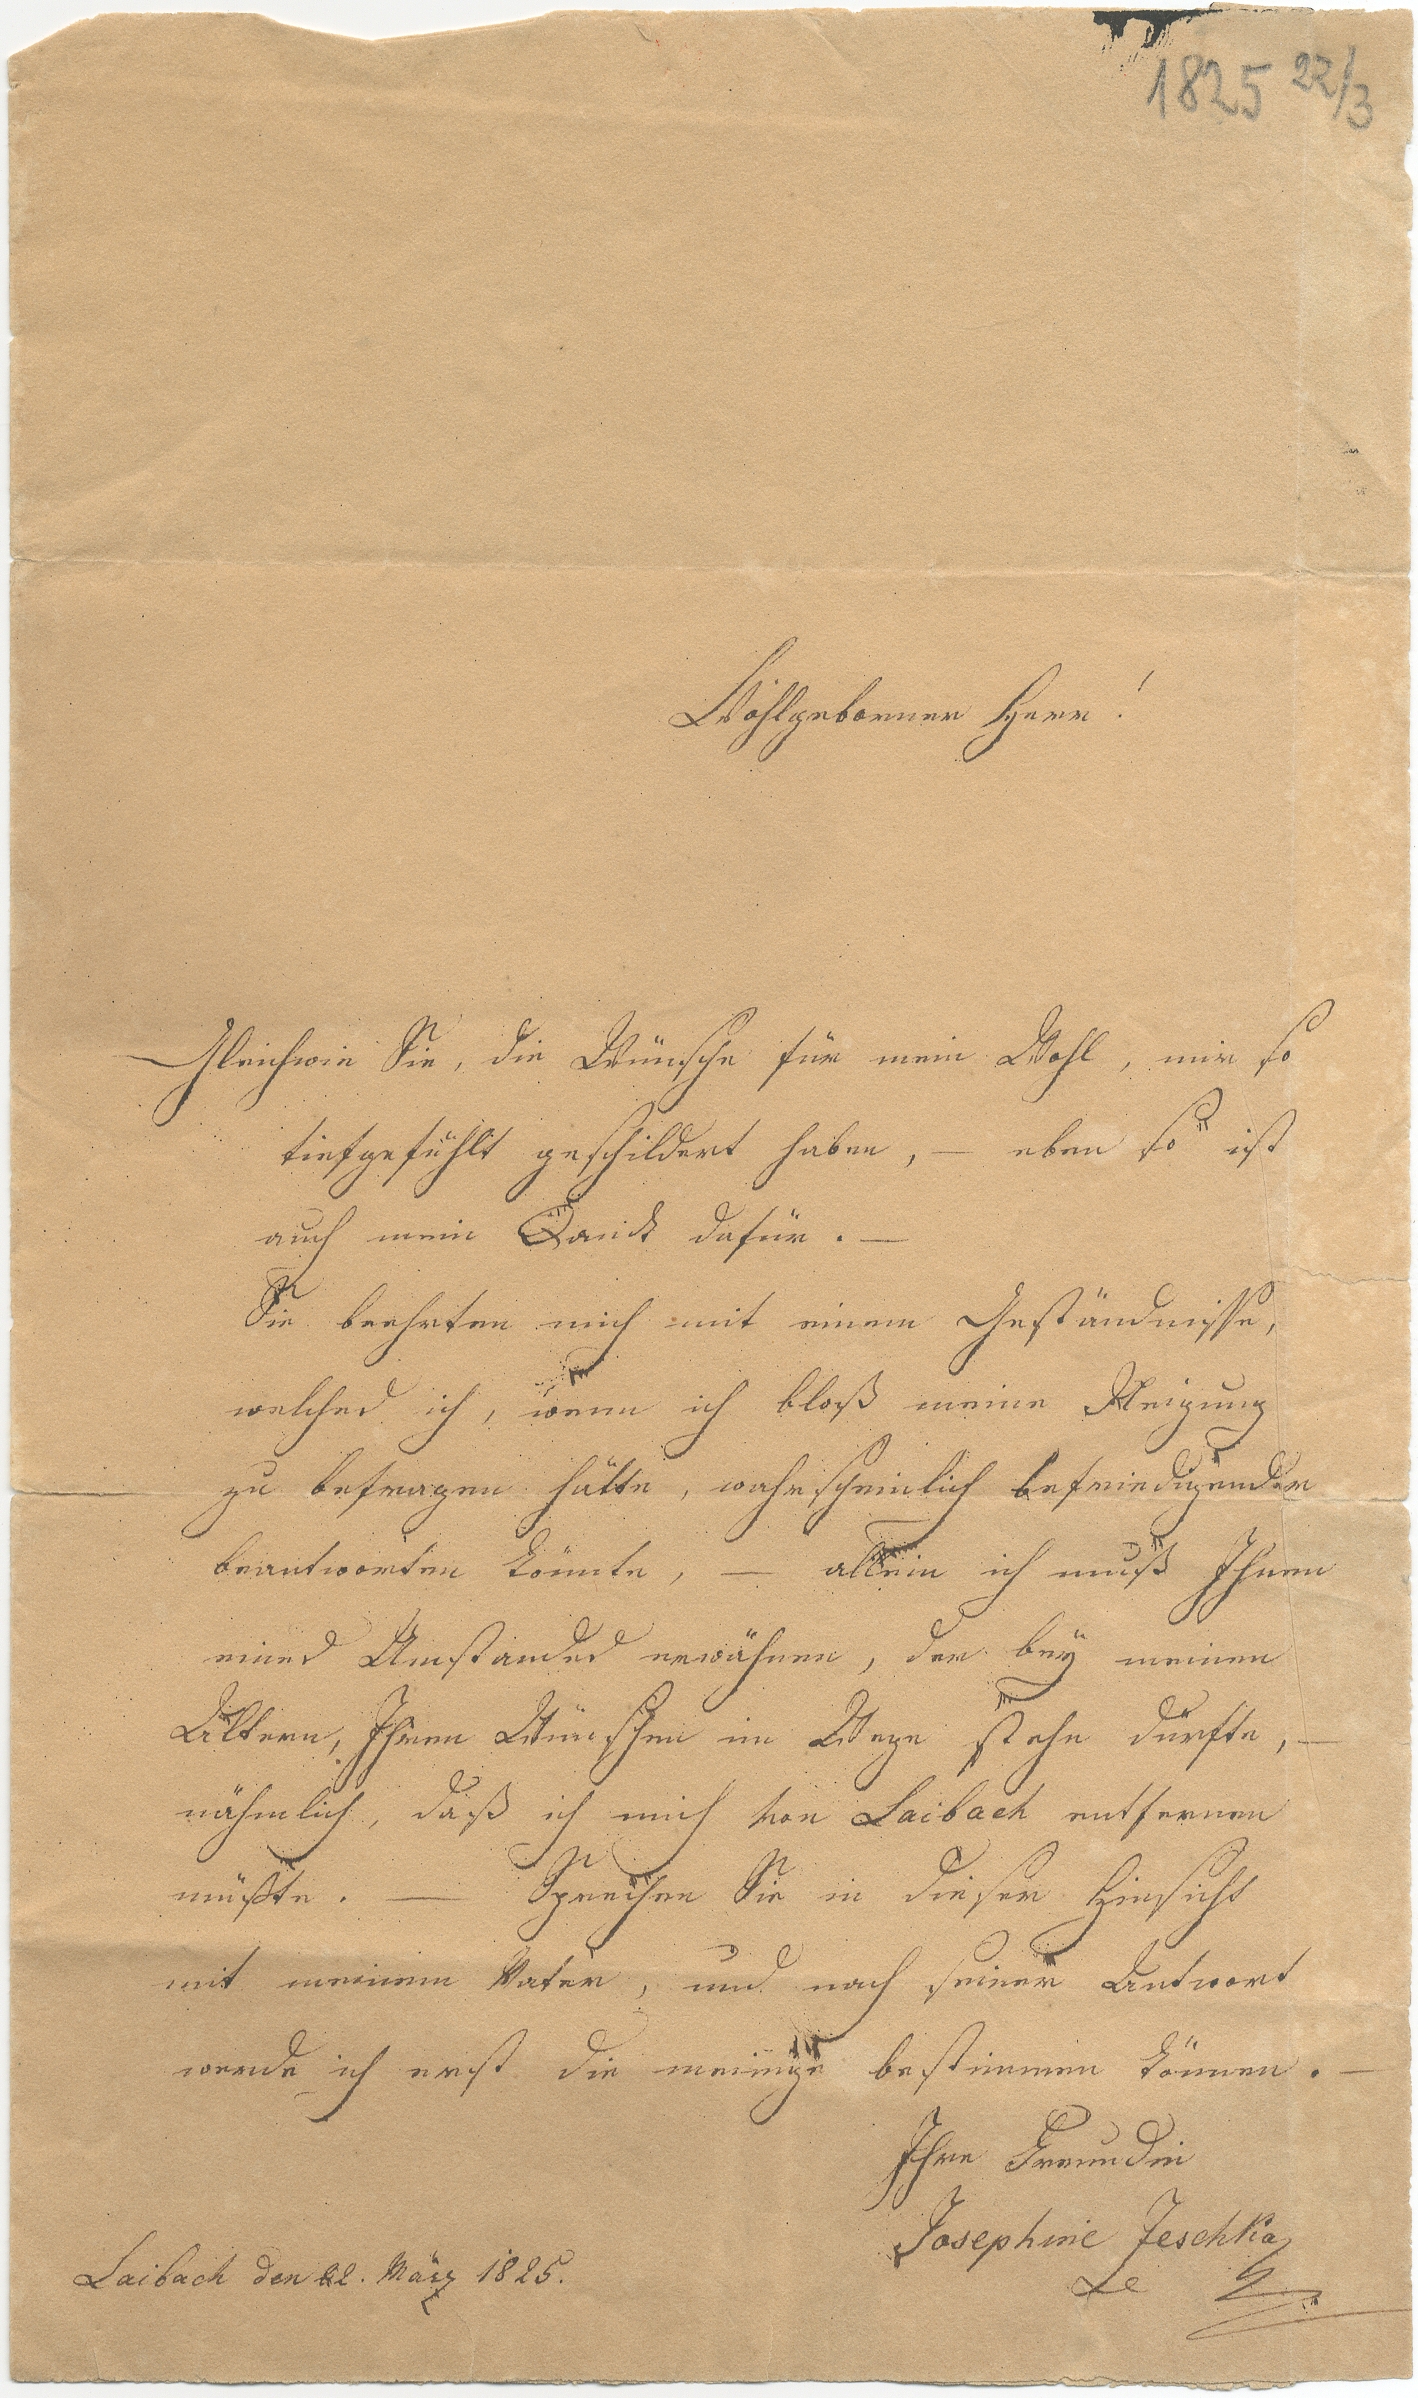 1825 22/3
Wohlgeborner Herr!
Gleichwie Sie, die Wünsche für mein Wohl, mir so
tiefgefühlt geschildert haben, — eben so ist
auch mein Danck dafür. —
Sie beehrten mich mit einem Geständnisse,
welches ich, wenn ich bloß meine Neigung
zu befragen hätte, wahrscheinlich befriedigender
beantworten könnte, — allein ich muß Ihnen
eines Umstandes erwähnen, der bey meinen
Ältern, Ihren Wünschen im Wege stehn dürfte, —
nähmlich, daß ich mich von Laibach entfernen
müßte. — Sprechen Sie in dieser Hinsicht
mit meinem Vater, und nach seiner Antwort
werde ich erst die meinige bestimmen können. —
Ihre Freundin
Josephine Jeschka
Laibach den 22. März 1825.